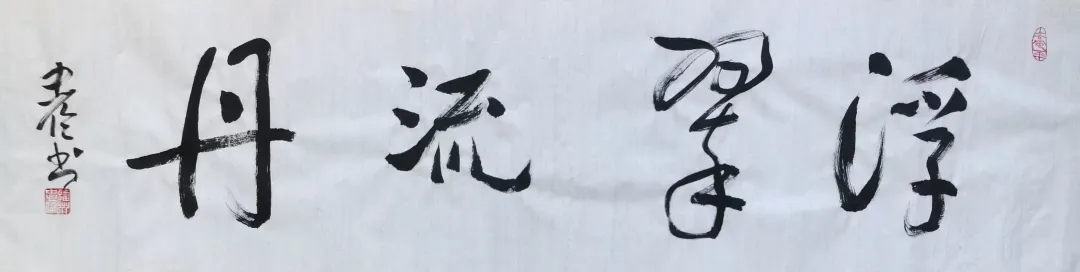 浮翠流丹